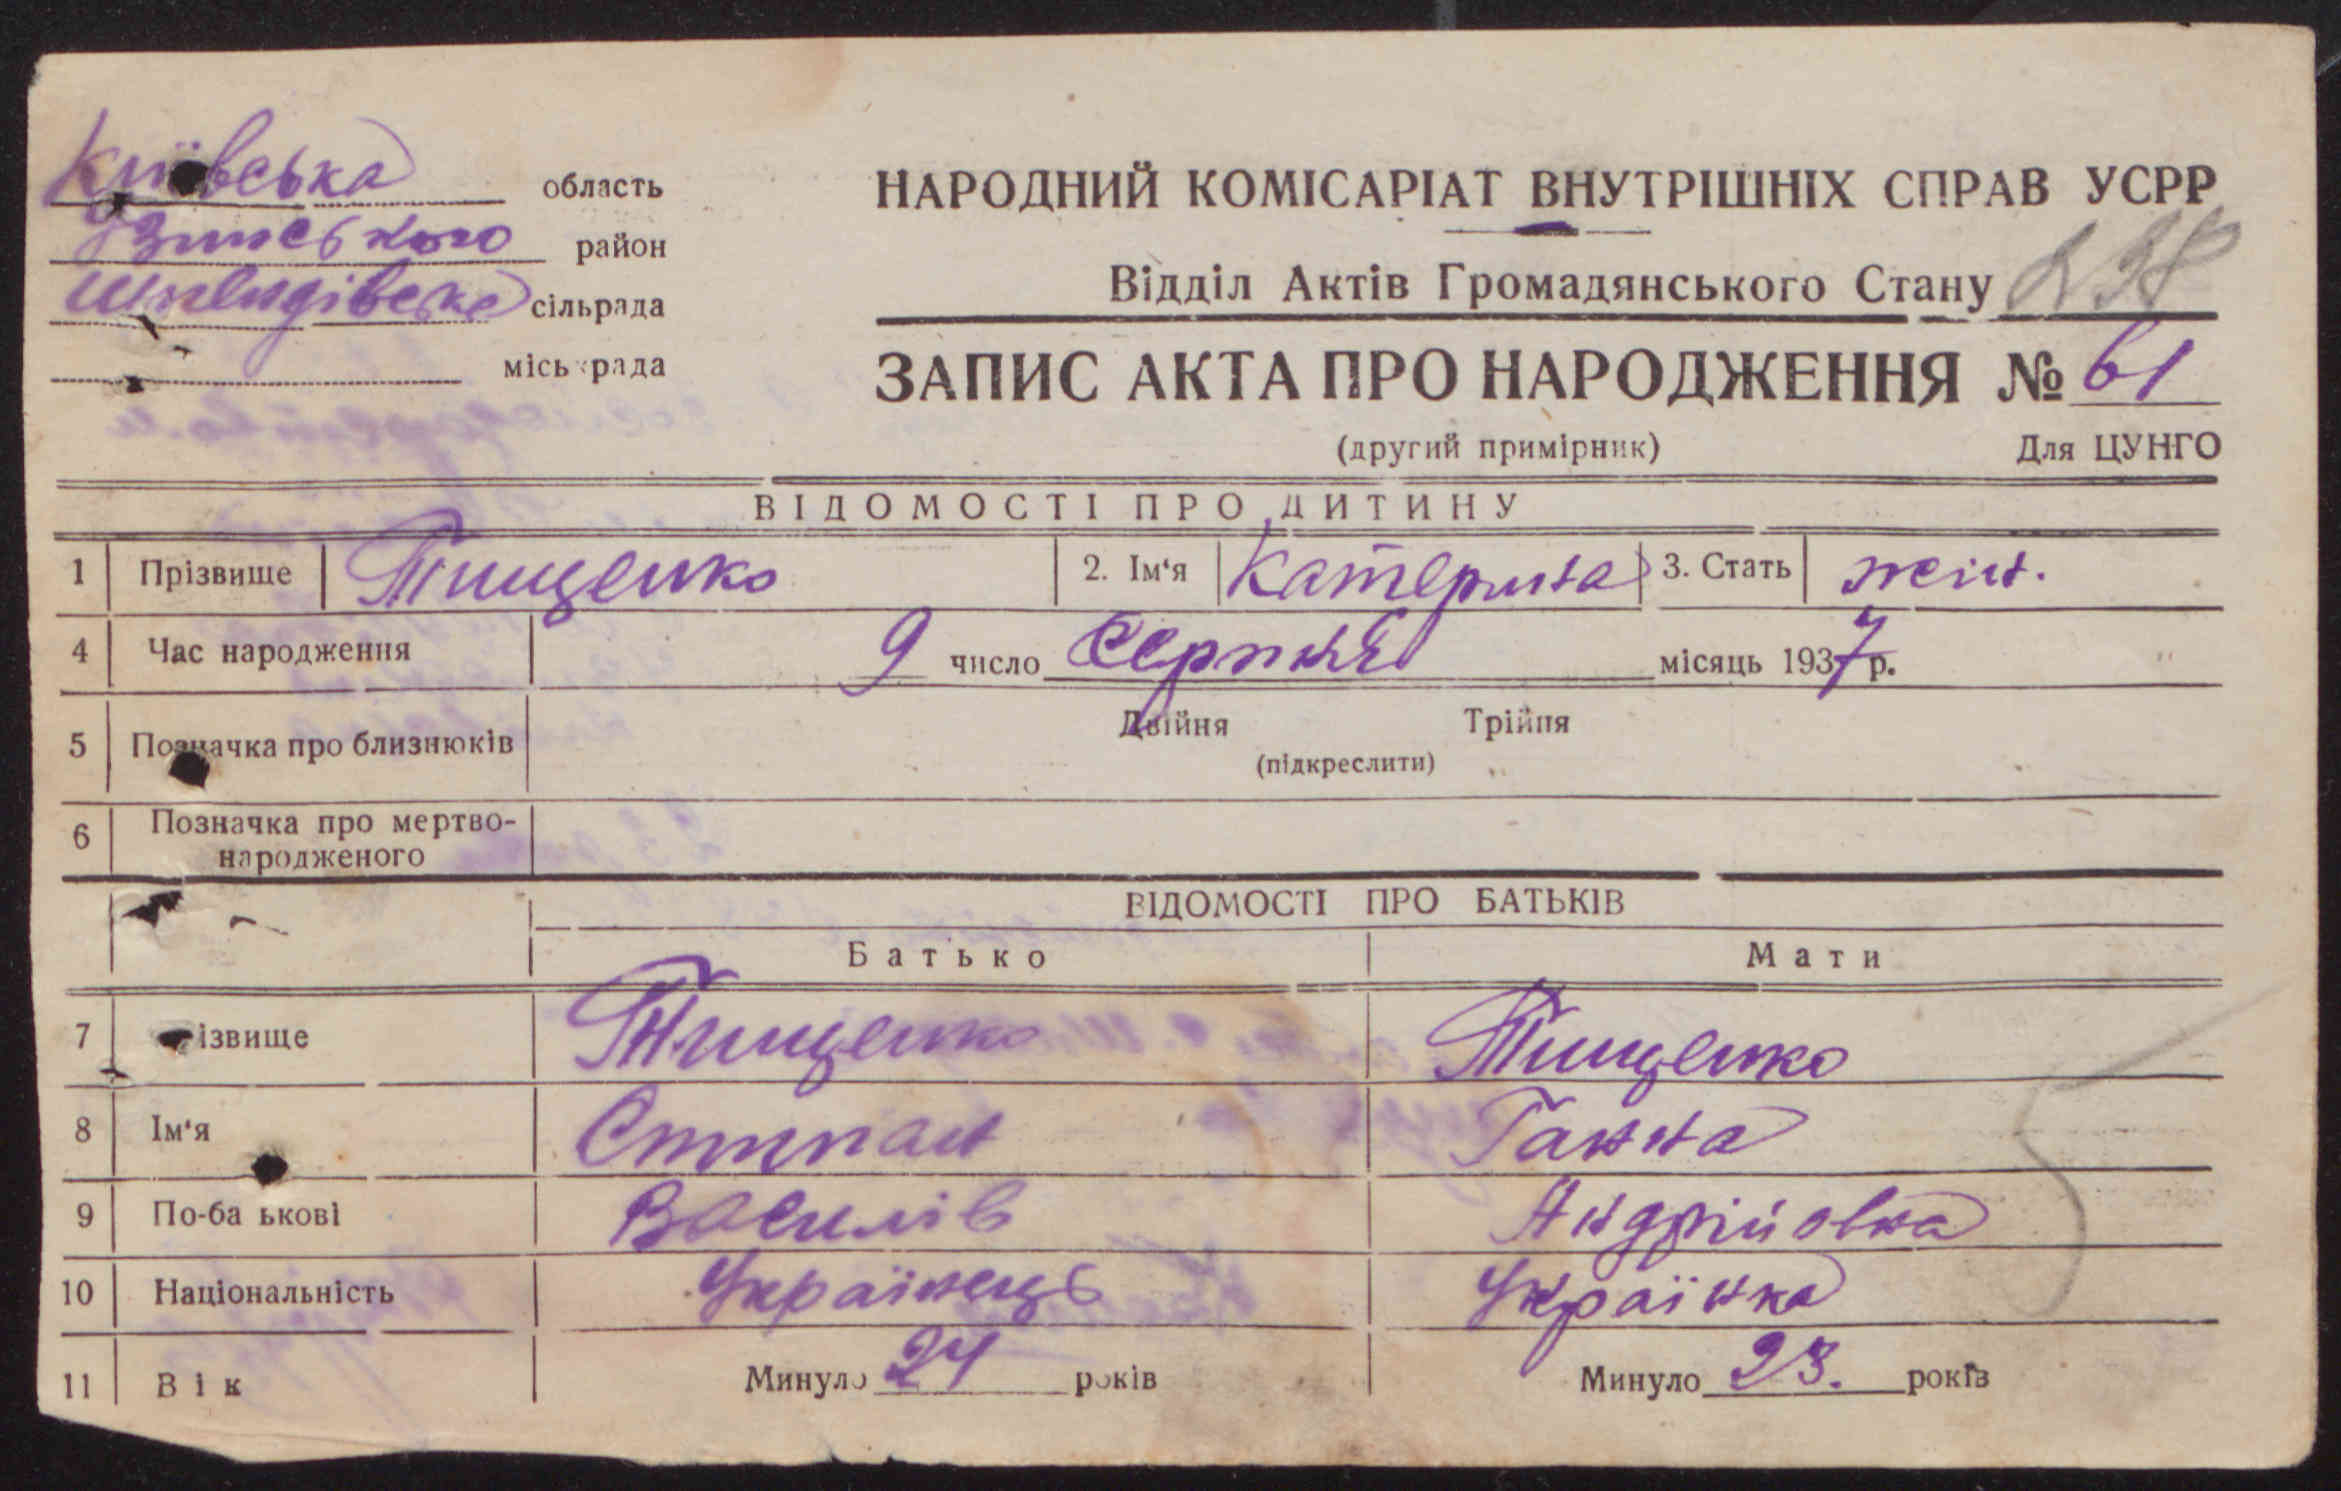 Київська область
Узинського район
Шпендівська сільрада
міськрада
НАРОДНИЙ КОМІСАРІАТ ВНУТРІШНІХ СПРАВ УСРР
Відділ Актів Громадянського Стану
ЗАПИС АКТА ПРО НАРОДЖЕННЯ № 61
(другий примірник) Для ЦУНГО
ВІДОМОСТІ ПРО ДИТИНУ
1 Прізвище Тищенко 2. Ім‘я Катерина 3. Стать жін.
4 Час народження 9 число Серпня місяць 1937 р.
5 Позначка про близнюків Двійня Трійня
(підкреслити)
6 Позначка про мертво-
народженого
ВІДОМОСТІ ПРО БАТЬКІВ
Батько Мати
7 Прізвище Тищенко Тищенко
8 Ім‘я Степан Ганна
9 По-ба ькові Василів Андрійовна
10 Національність Українець Українка
11 Вік Минуло 24 років Минуло 23. років